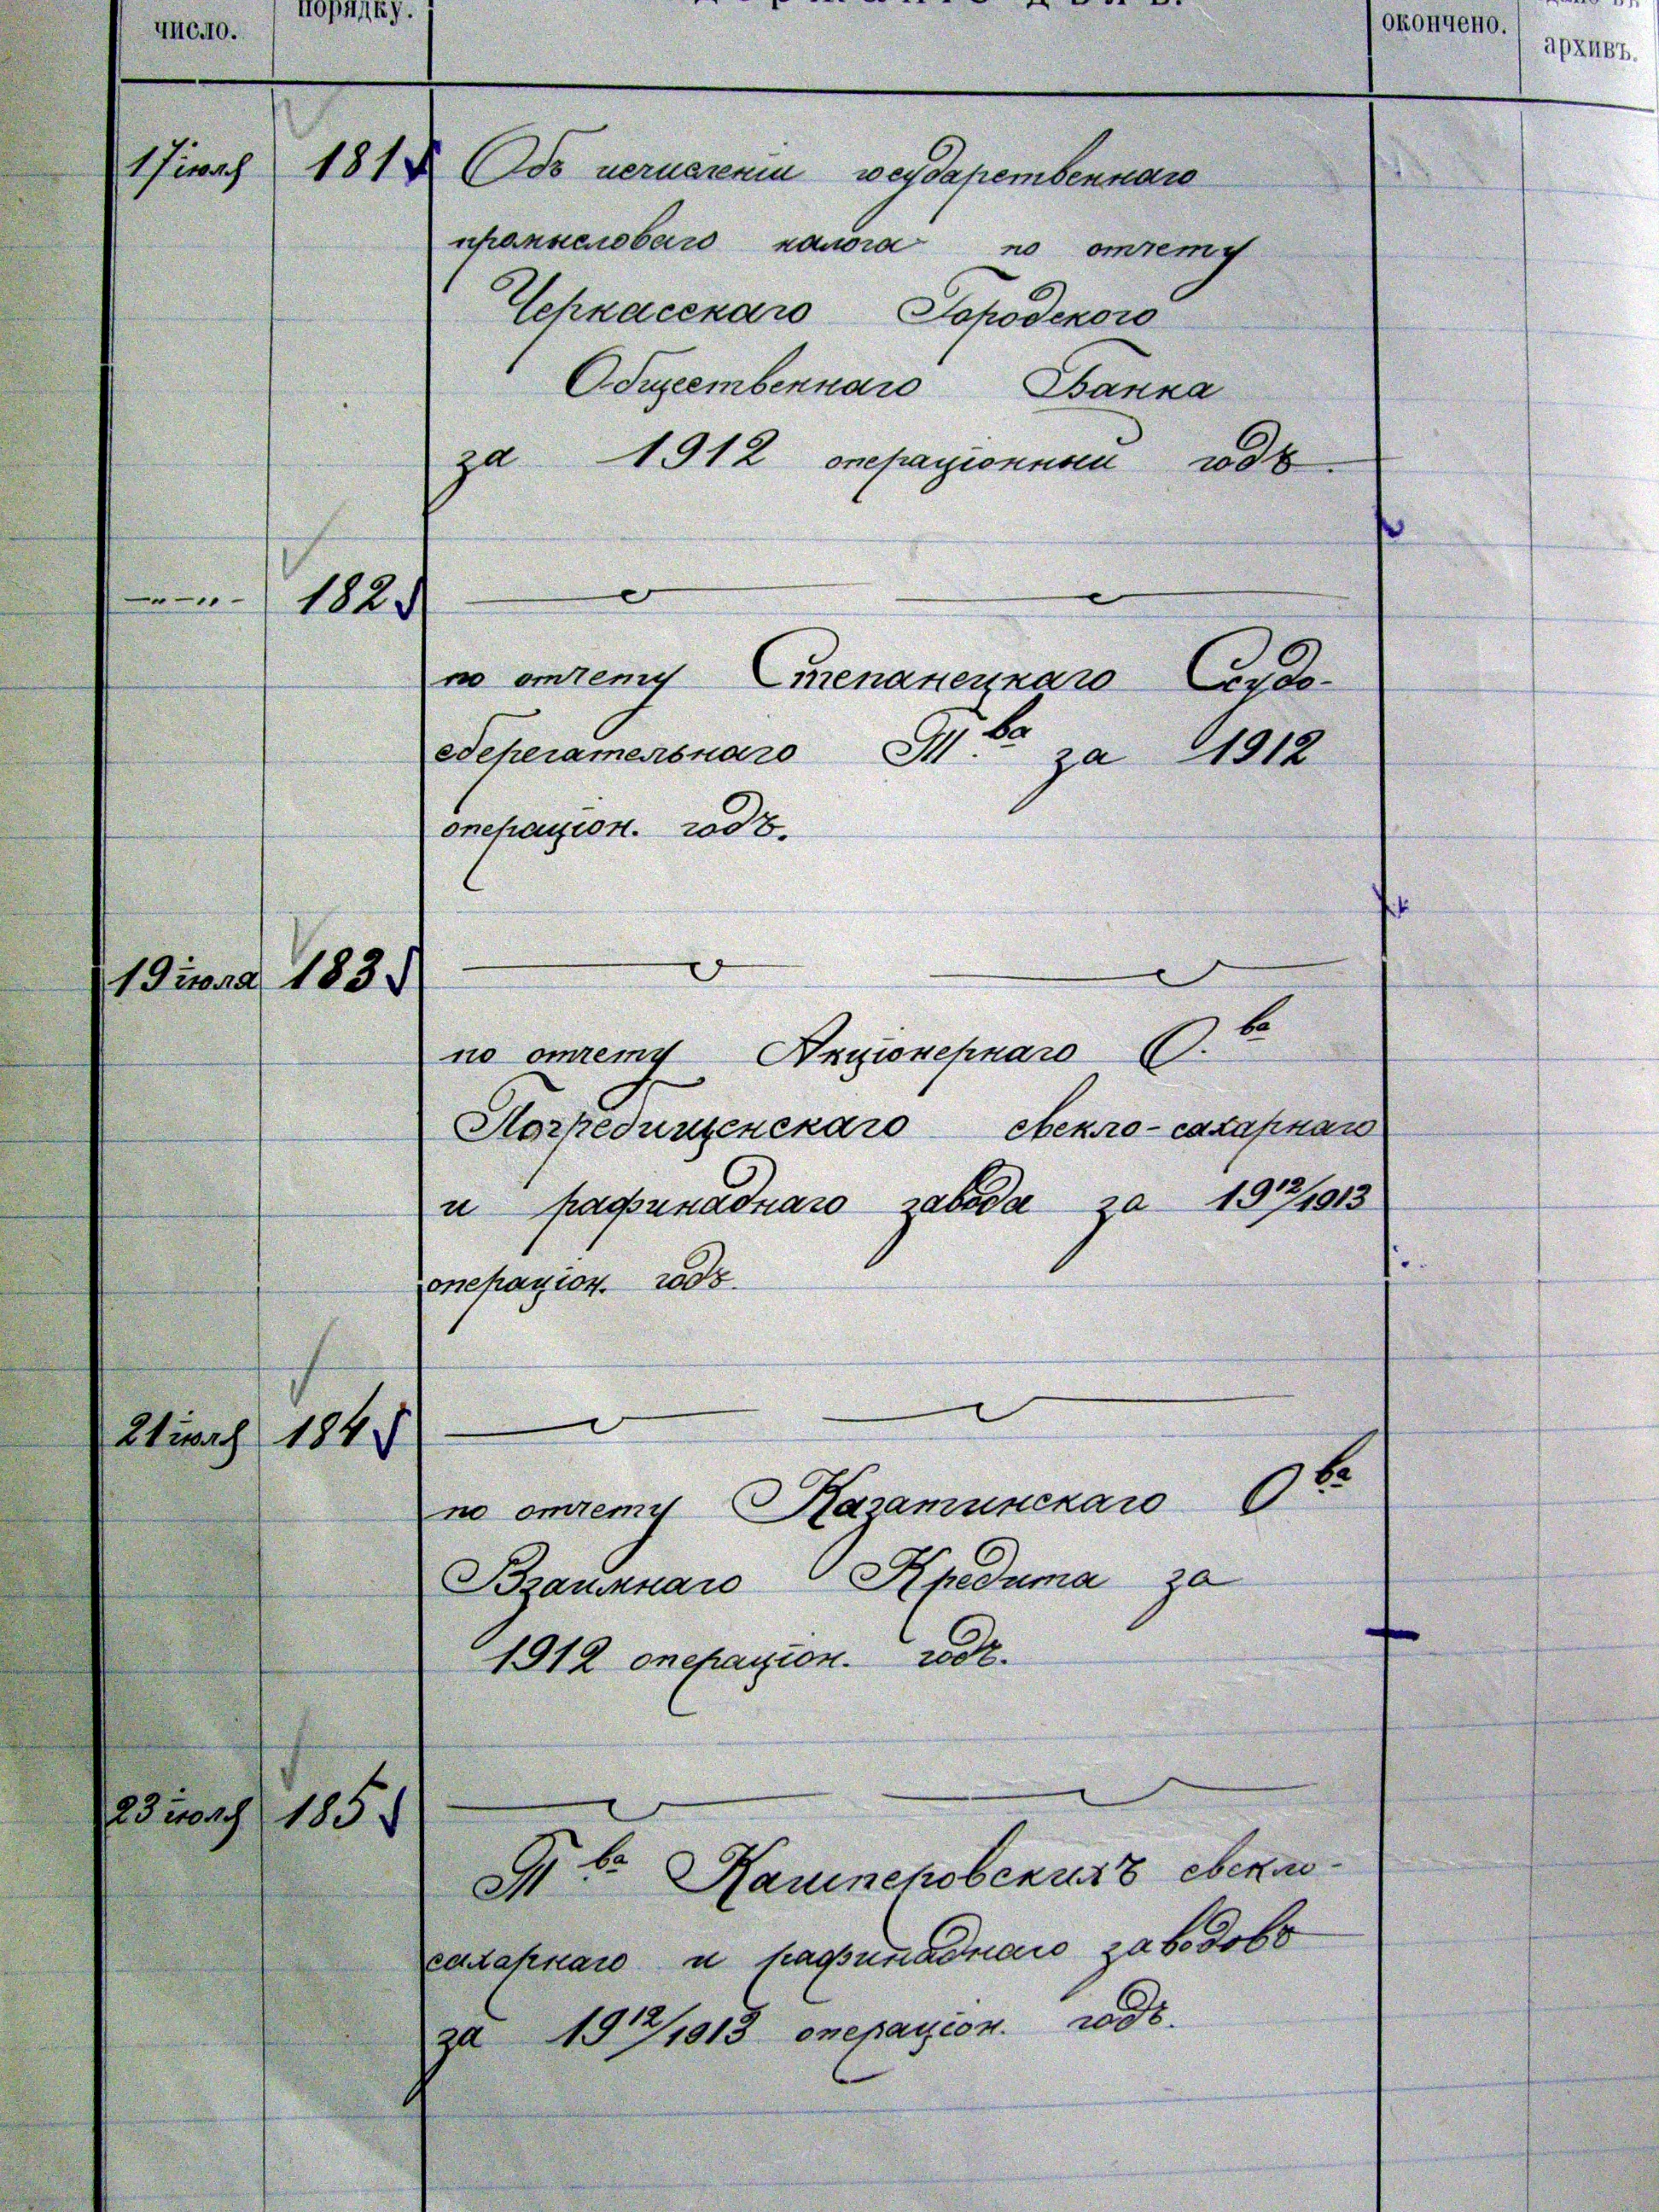 число.
порядку.
держаніе дѣлъ.
окончено.
архивъ.
17 іюля 181 Объ исчисленіи государственнаго
промысловаго налога по отчету
Черкасскаго Городского
Общественнаго Банка
за 1912 операціонный годъ.
—"—"— 182
по отчету Степанецкаго Ссудо-
сберегательнаго Т.ва за 1912
операціон. годъ.
19 іюля 183
по отчету Акціонернаго О.ва
Погребищенскаго свекло-сахарнаго
и рафинаднаго завода за 1912/1913
операціон. годъ.
21 іюля 184
по отчету Казатинскаго О ва
Взаимнаго Кредита за
1912 операціон. годъ.
23 іюля 185
Т ва Кашперовскихъ свекло-
сахарнаго и рафинаднаго заводовъ
за 1912/1913 операціон. годъ.